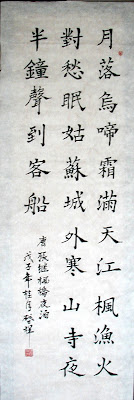 月落烏啼霜滿天江楓漁火
對愁眠姑蘇城外寒山寺夜
半鐘聲到客船
唐張繼楓橋夜泊
戊子年桂月